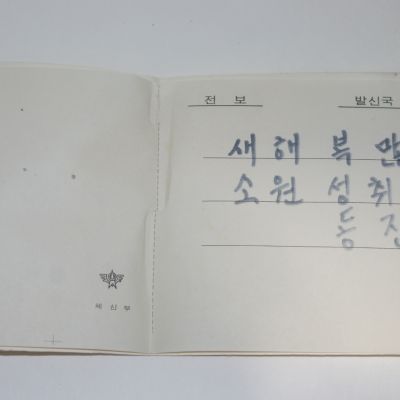 전 보 발신국
새해 복 많
소원 성취
동진
체신부